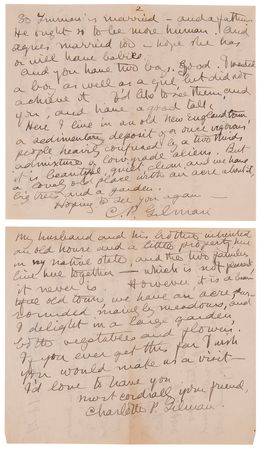 2
So Truman's married - and a father.
He ought to be more human. And
Agnes married too - hope she has
or will have babies.
And you have two boys, Good. I wanted
a boy as well as a girl, but did not
achieve it. I'd like to see them and
you, and have a good talk.
Here I live in an old New England town
a sedimentary deposit of a once vigorous
people nearly confused by a two thirds
admixture of low grade aliens. But
it is beautiful, quiet, clean, and we have
a lovely old place with an acre about it
big trees and a garden.
Hoping to see you again
C. P. Gilman
My husband and his brother inherited
an old house and a little property here
in my native state, and the two families
live here together - which is not pleasant
it never is. However it is a beauti-
ful old town, we have an acre sur-
rounded mainly by meadows, and
I delight in a large garden,
both vegetables and flowers.
If you ever get this far I wish
you would make us a visit -
I'd love to have you
most cordially your friend,
Charlotte P. Gilman.